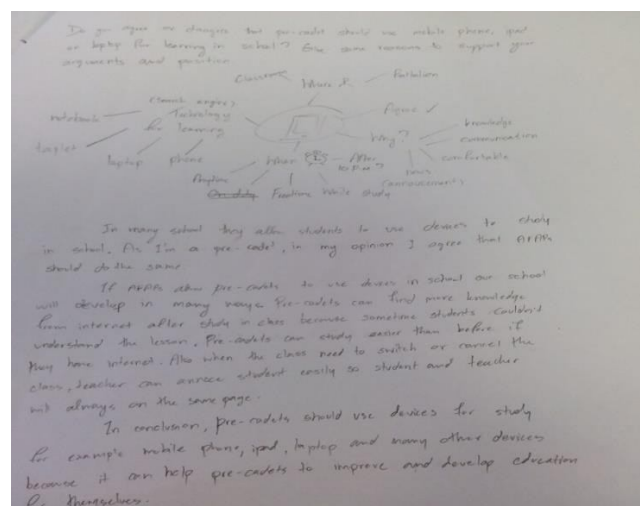 Do you agree or disagree that pre-cadet should use mobile phone, ipad
or laptop for learning in school? Give some reasons to support your
arguments and position
Classroom Where? Battalion
(Search engine)
notebook Technology Agree ✓ knowledge
for learning Why? communication
tablet When After comfortable
laptop phone news
Anytime Freetime While study (announcements)
In many school they allow students to use devices to study
in school. As I'm a pre-cadet, in my opinion I agree that AFAPS
should do the same.
If AFAPS allow pre-cadets to use devices in school our school
will develop in many ways. Pre-cadets can find more knowledge
from internet after study in class because sometime students couldn't
understand the lesson. Pre-cadets can study easier than before if
they have internet. Also when the class need to switch or cancel the
class, teacher can student easily so student and teacher
will always on the same page.
In conclusion, pre-cadets should use devices for study
for example mobile phone, ipad, laptop and many other devices
because it can help pre-cadets to improve and develop education
themselves.